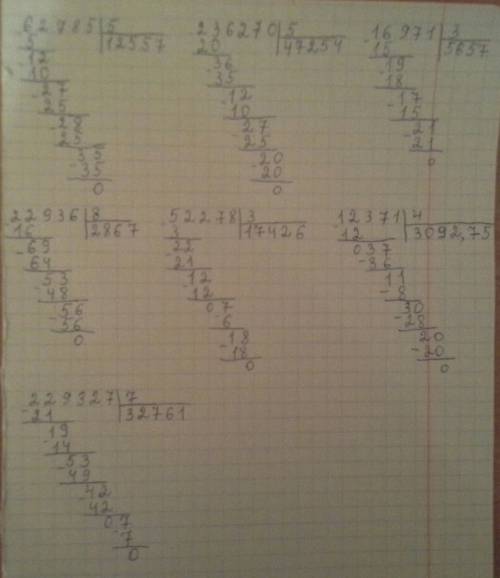 62785 | 5
5 | 12557
-12
10
-27
25
-28
25
-35
35
0
236270 | 5
20 | 47254
-36
35
-12
10
-27
25
-20
20
0
-16971 | 3
15 | 5657
-19
18
-17
15
-21
21
0
22936 | 8
16 | 2867
-69
64
-53
48
-56
56
0
-52278 | 3
3 | 17426
-22
21
-12
12
07
-6
-18
18
0
-12371 | 4
12 | 3092,75
037
-36
11
-8
30
-28
20
-20
0
229327 | 7
-21 | 32761
19
14
-53
49
-42
42
07
-7
0